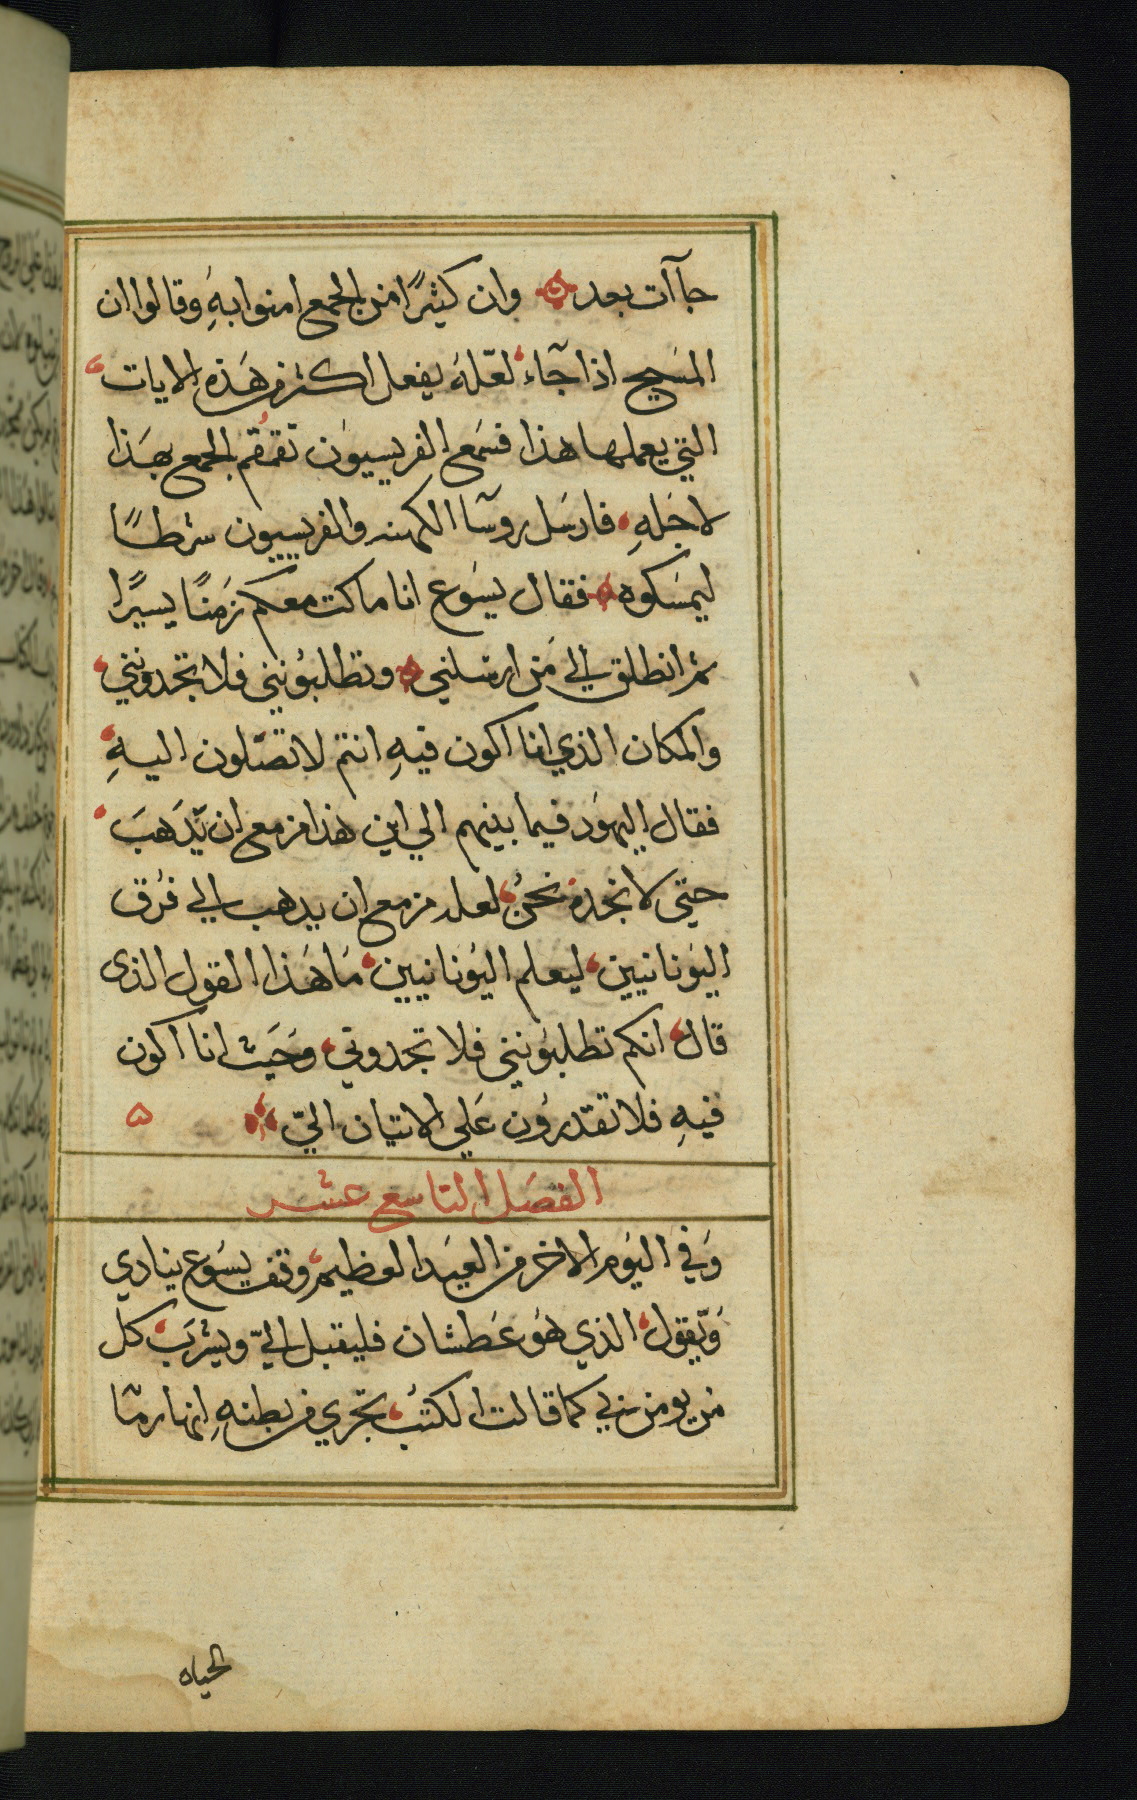 جاآت بعد وان كثيرًا من الجمع امنوا بهِ وقالوا ان
المسَيح اذا جآء لعّلهَ يفعل اكثر من هَذهِ الايات
التي يعملها هذا فسَمع الفريسيوُن تقمقم الجمع بهَذا
لاجَلهِ فارسَل روسآ الكهنه والفريسيون شرطًا
ليمسَكوه فقال يسَوع انا ماكث معكم زمَنًا يسيرًا
ثم انطلق الي مَن ارسَلني وتطلبوُنني فلا تجدونني
والمكان الذي انا اكون فيهِ انتم لا تصّلون اليهِ
فقال اليهوَد فيما بينهم الي اين هذا مزمع ان يّذهَبَ
حتي لا نجدهُ نحنُ لعله مزمع ان يذهب الي فرُق
اليوُنانيين ليعلم اليوُنانيين مَا هَذا القول الذى
قال انكم تطلبوُنني فلا تجدوني وحَيث انا اكون
فيهِ فلا تقدّروُن عَلي الاتيان اليّ ۵
الفصَل التاسع عشر
وَفي اليوَم الاخر من العيَد العظيم وقف يسَوع ينادي
وَيّقول الذي هوُ عَطشان فليقبل اليّ ويشربَ كل
مَن يومن بي كما قالت الكتبُ تجري من بطنهِ انهار مآ
الحياه